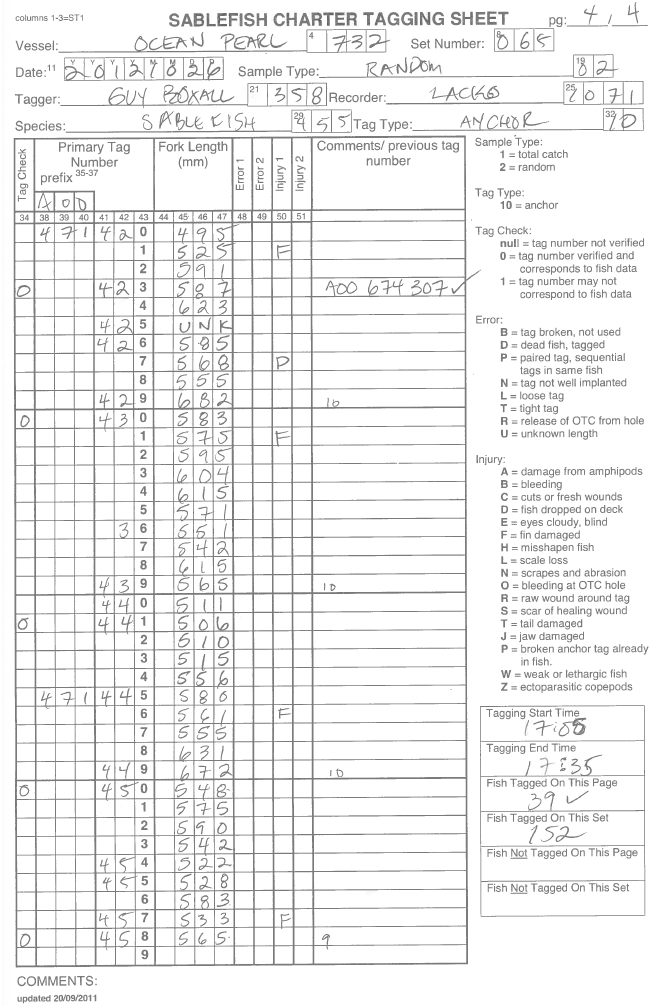 columns 1-3=ST1
SABLEFISH CHARTER TAGGING SHEET
pg: 4 , 4
Vessel: OCEAN PEARL 4 732 Set Number: 8 065
Date: 11 Sample Type: RANDOM 19 02
Tagger: GUY BOXALL 21 358 Recorder: LACKO 25 071
Species: SABLEFISH 29 455 Tag Type: ANCHOR 32 10
Tag Check Primary Tag Number prefix 35-37 Fork Length (mm) Error 1 Error 2 Injury 1 Injury 2 Comments/ previous tag number
A00
34 38 39 40 41 42 43 44 45 46 47 48 49 50 51
4 7 1 4 2 0 495
1 525 F
2 591
0 4 2 3 587 A00 674 307 ✓
4 623
4 2 5 UNK
4 2 6 585
7 568 P
8 555
4 2 9 682 10
0 4 3 0 583
1 575 F
2 595
3 604
4 615
5 571
3 6 551
7 542
8 615
4 3 9 565 10
4 4 0 511
0 4 4 1 506
2 510
3 515
4 556
4 7 1 4 4 5 580
6 561 F
7 555
8 631
4 4 9 672 10
0 4 5 0 548
1 575
2 590
3 542
4 5 4 522
4 5 5 528
6 583
4 5 7 533 F
0 4 5 8 565 9
9
Sample Type:
1 = total catch
2 = random
Tag Type:
10 = anchor
Tag Check:
null = tag number not verified
0 = tag number verified and
corresponds to fish data
1 = tag number may not
correspond to fish data
Error:
B = tag broken, not used
D = dead fish, tagged
P = paired tag, sequential
tags in same fish
N = tag not well implanted
L = loose tag
T = tight tag
R = release of OTC from hole
U = unknown length
Injury:
A = damage from amphipods
B = bleeding
C = cuts or fresh wounds
D = fish dropped on deck
E = eyes cloudy, blind
F = fin damaged
H = misshapen fish
L = scale loss
N = scrapes and abrasion
O = bleeding at OTC hole
R = raw wound around tag
S = scar of healing wound
T = tail damaged
J = jaw damaged
P = broken anchor tag already
in fish.
W = weak or lethargic fish
Z = ectoparasitic copepods
Tagging Start Time
Tagging End Time
17:35
Fish Tagged On This Page
39 ✓
Fish Tagged On This Set
152
Fish Not Tagged On This Page
Fish Not Tagged On This Set
COMMENTS:
updated 20/09/2011